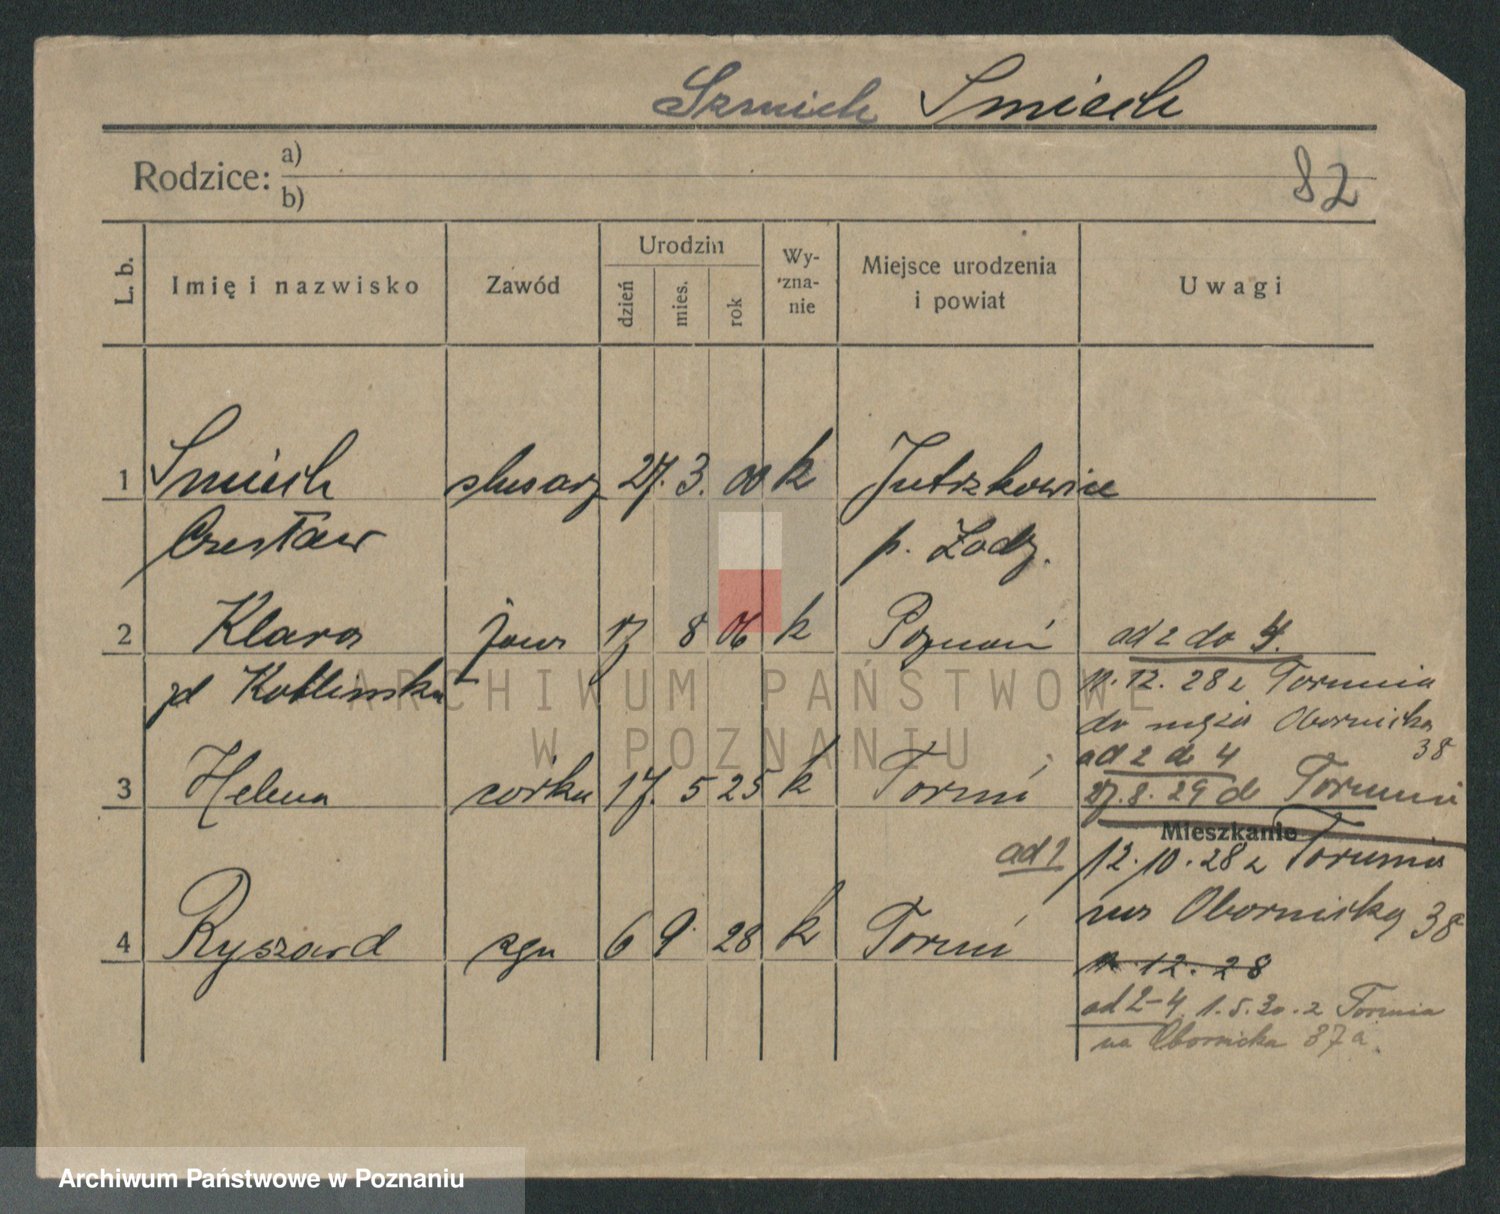 Szmiech Smiech
Rodzice: a)
b)
82
L. b. Imię i nazwisko Zawód Urodzin dzień mies. rok Wy-zna-nie Miejsce urodzenia i powiat Uwagi
1 Smiech slusarz 27. 3. 00 k Jutrzkowice
Czesław p. Łodz.
2 Klara żona 17 8 06 k Poznań ad 2 do 4.
zd Kotlinska 11. 12. 28 z Torunia
do męża Obornicka 38
ad 2 d 4
3 Helena corka 17. 5 25 k Toruń 27. 8. 29 d Torunia
Mieszkanie
ad 1 12. 10. 28 z Torunia
na Obornicką 38
4 Ryszard syn 6 9. 28 k Toruń
11. 12. 28
ad 2-4 1. 5. 30. z Torunia
na Obornicka 37a.
ARCHIWUM PAŃSTWOWE
W POZNANIU
Archiwum Państwowe w Poznaniu